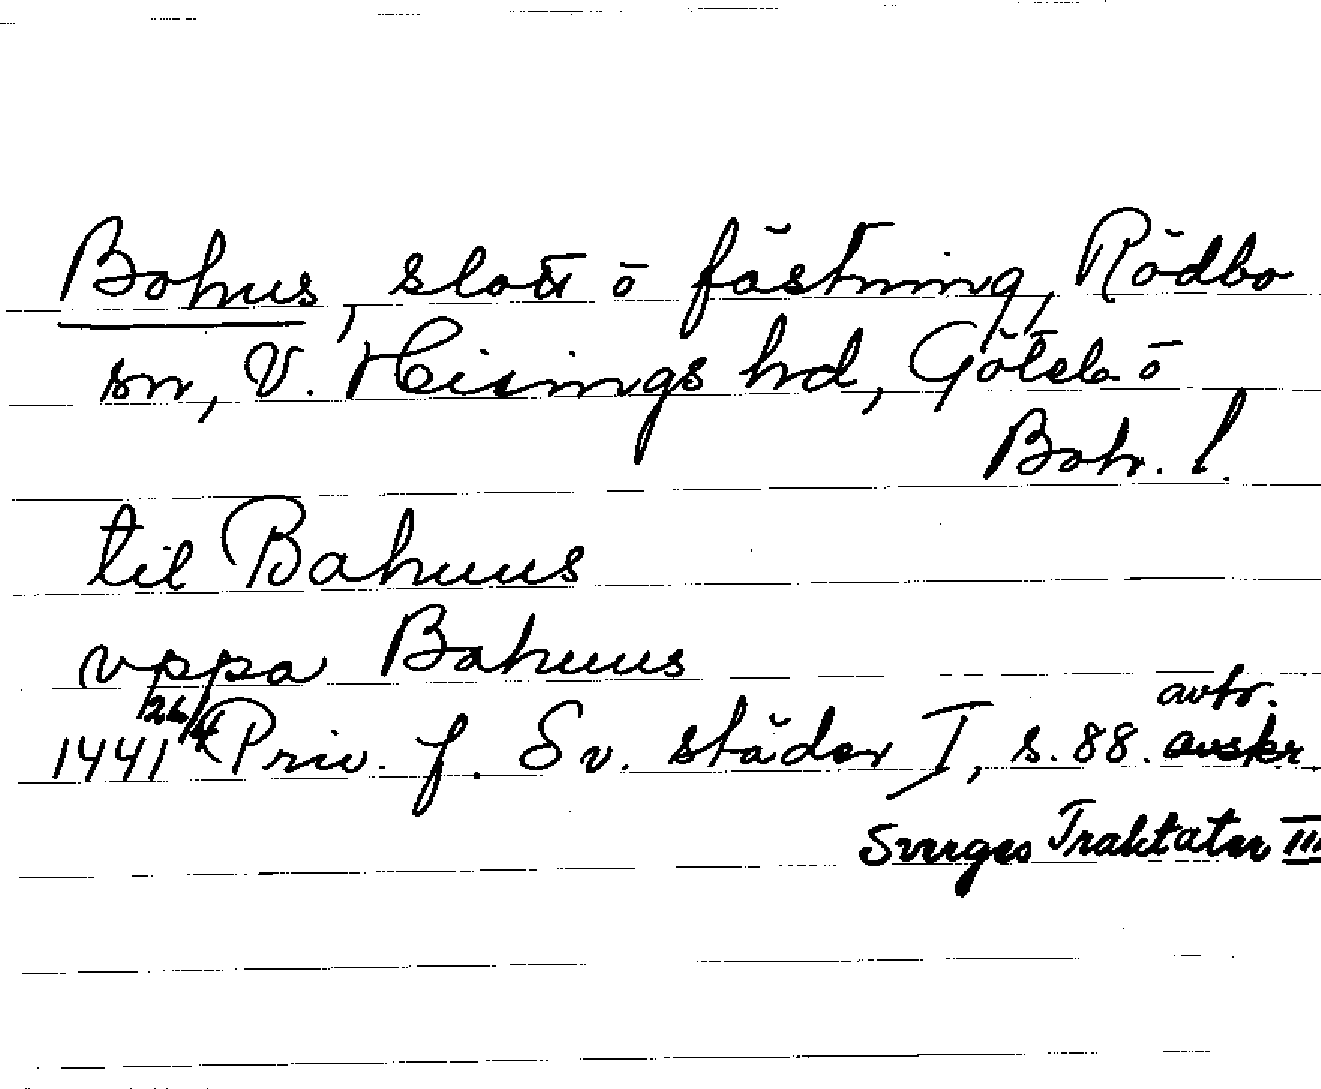 Bohus, slott o fästning, Rödbo
sn, V. Hisings hd, Göteb. o
Boh. l.
til Bahuus
vppa Bahuus
1441 26/4 Priv. f. Sv. städer I, s. 88. avtr. avskr.
Sverges Traktater III